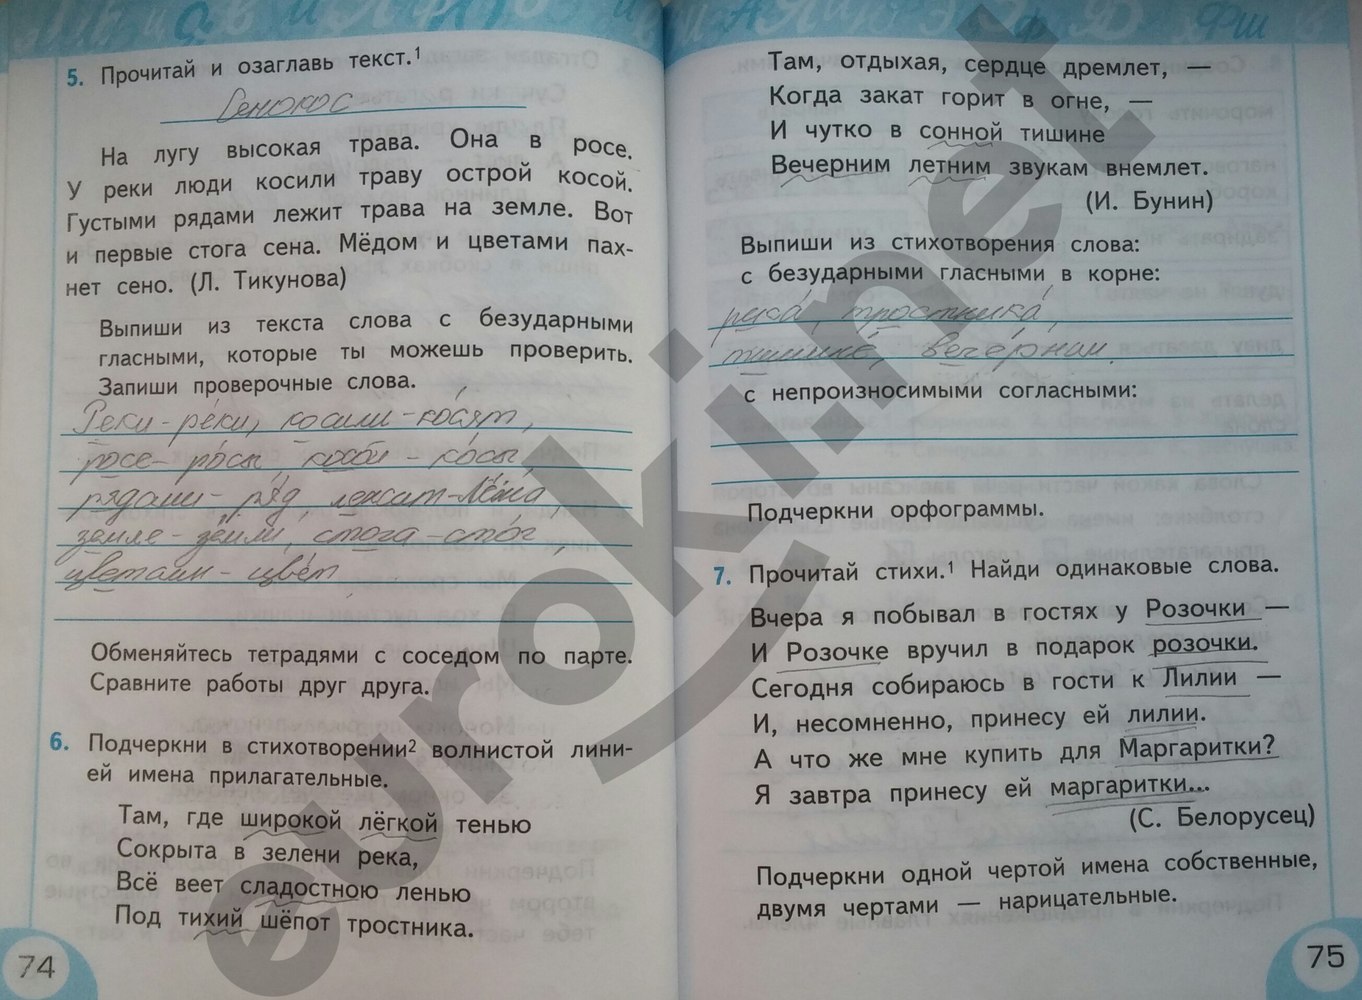 5. Прочитай и озаглавь текст.¹
Сенокос
На лугу высокая трава. Она в росе.
У реки люди косили траву острой косой.
Густыми рядами лежит трава на земле. Вот
и первые стога сена. Мёдом и цветами пах-
нет сено. (Л. Тикунова)
Выпиши из текста слова с безударными
гласными, которые ты можешь проверить.
Запиши проверочные слова.
Реки - ре́ки, косили - ко́сят,
росе - ро́сы, косой - ко́сы,
рядами - ря́д, лежит - лёжа,
земле - зе́мли, стога - сто́г,
цветами - цве́т
Обменяйтесь тетрадями с соседом по парте.
Сравните работы друг друга.
6. Подчеркни в стихотворении² волнистой лини-
ей имена прилагательные.
Там, где широкой лёгкой тенью
Сокрыта в зелени река,
Всё веет сладостною ленью
Под тихий шёпот тростника.
74
Там, отдыхая, сердце дремлет, —
Когда закат горит в огне, —
И чутко в сонной тишине
Вечерним летним звукам внемлет.
(И. Бунин)
Выпиши из стихотворения слова:
с безударными гласными в корне:
река́, тростника́,
тишине́, вече́рним.
с непроизносимыми согласными:
Подчеркни орфограммы.
7. Прочитай стихи.¹ Найди одинаковые слова.
Вчера я побывал в гостях у Розочки —
И Розочке вручил в подарок розочки.
Сегодня собираюсь в гости к Лилии —
И, несомненно, принесу ей лилии.
А что же мне купить для Маргаритки?
Я завтра принесу ей маргаритки...
(С. Белорусец)
Подчеркни одной чертой имена собственные,
двумя чертами — нарицательные.
75
euroki.net